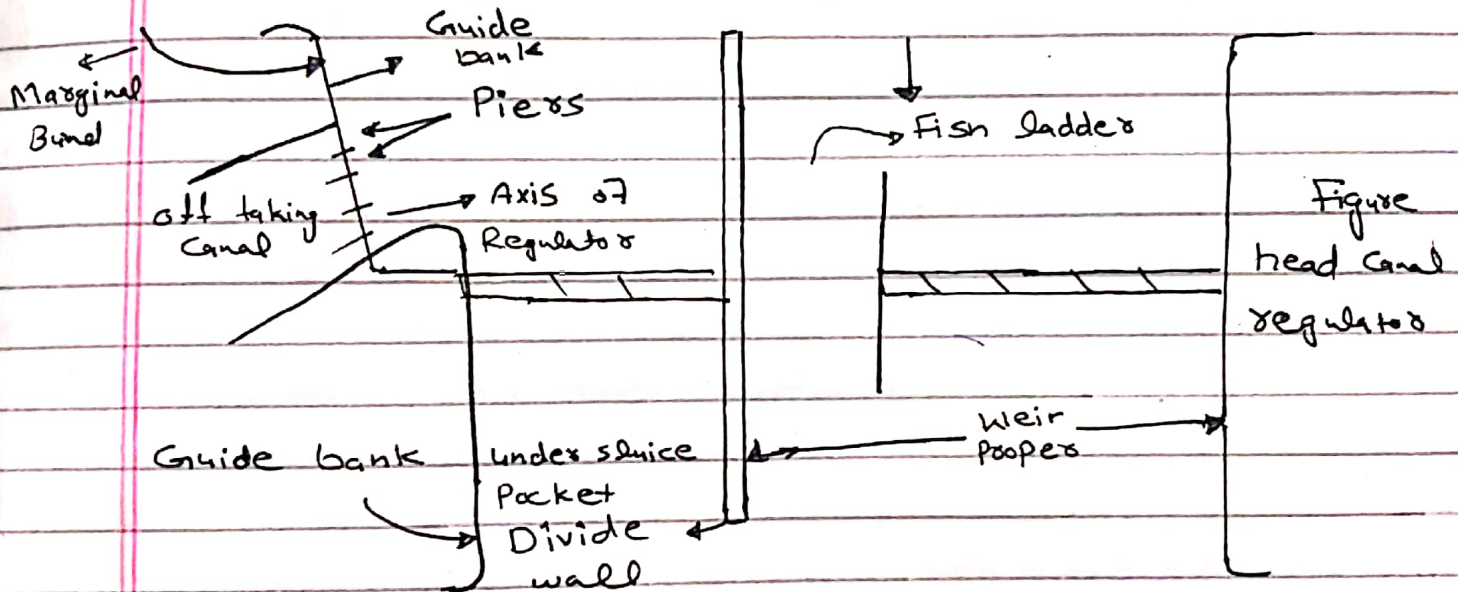 Guide
bank
Marginal
Bund
Piers
Fish ladder
off taking
Canal
Axis of
Regulator
Figure
head Canal
regulator
Weir
Proper
Guide bank
under sluice
Pocket
Divide
wall